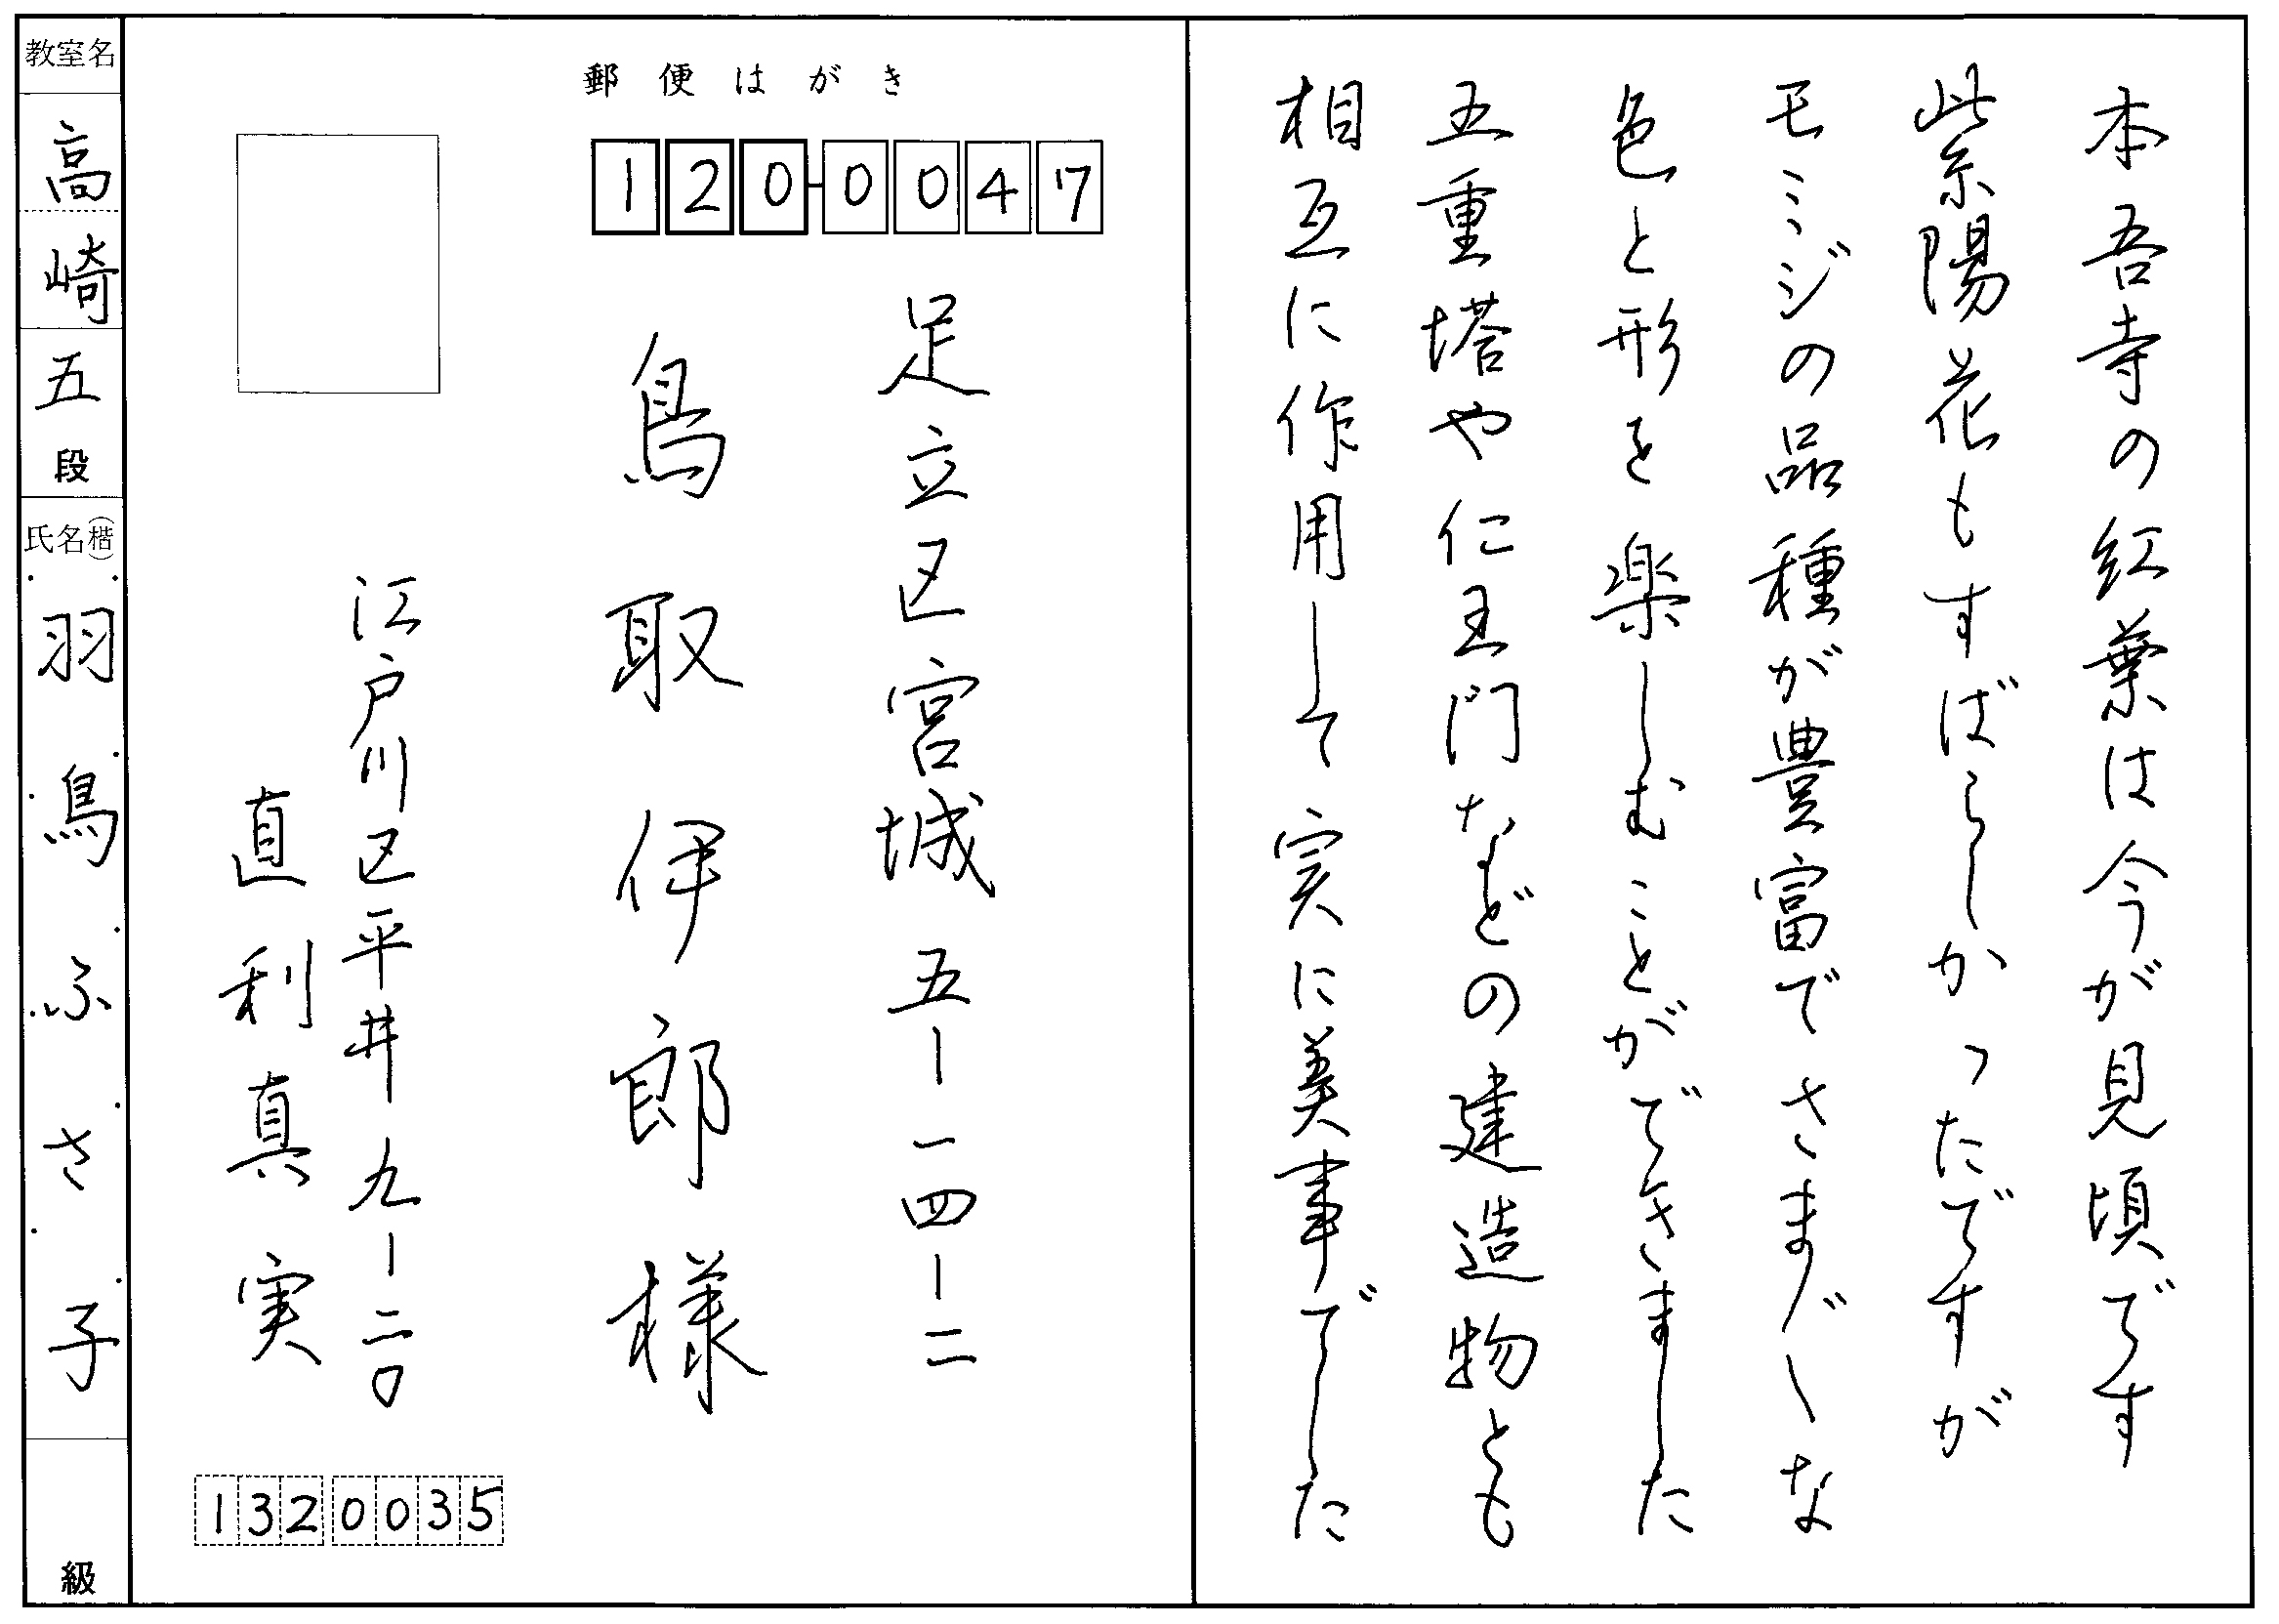 本吾寺の紅葉は今が見頃です
紫陽花もすばらしかったですが
モミジの品種が豊富でさまぐ〳〵な
色と形を楽しむことができました
五重塔や仁王門などの建造物とも
相互に作用して実に美事でした
郵便はがき
120-0047
足立区宮城五-一四-二
鳥取伊郎様
江戸川区平井九-二〇
直利真実
1320035
教室名
高崎
五段
氏名(楷)
羽鳥ふさ子
級